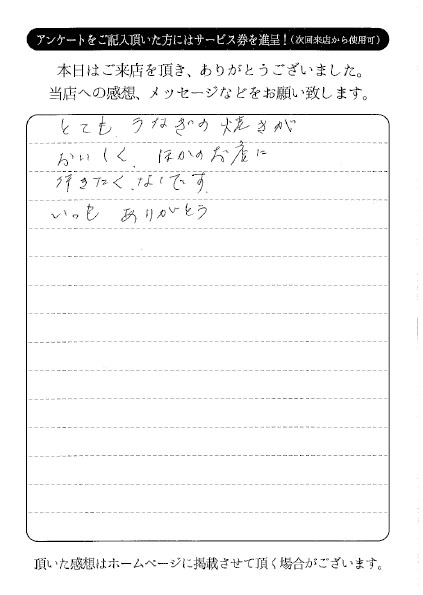 アンケートをご記入頂いた方にはサービス券を進呈！(次回来店から使用可)
本日はご来店を頂き、ありがとうございました。
当店への感想、メッセージなどをお願い致します。
とても うなぎの焼きが
おいしく、ほかのお店に
行きたくなしです
いつも ありがとう
頂いた感想はホームページに掲載させて頂く場合がございます。